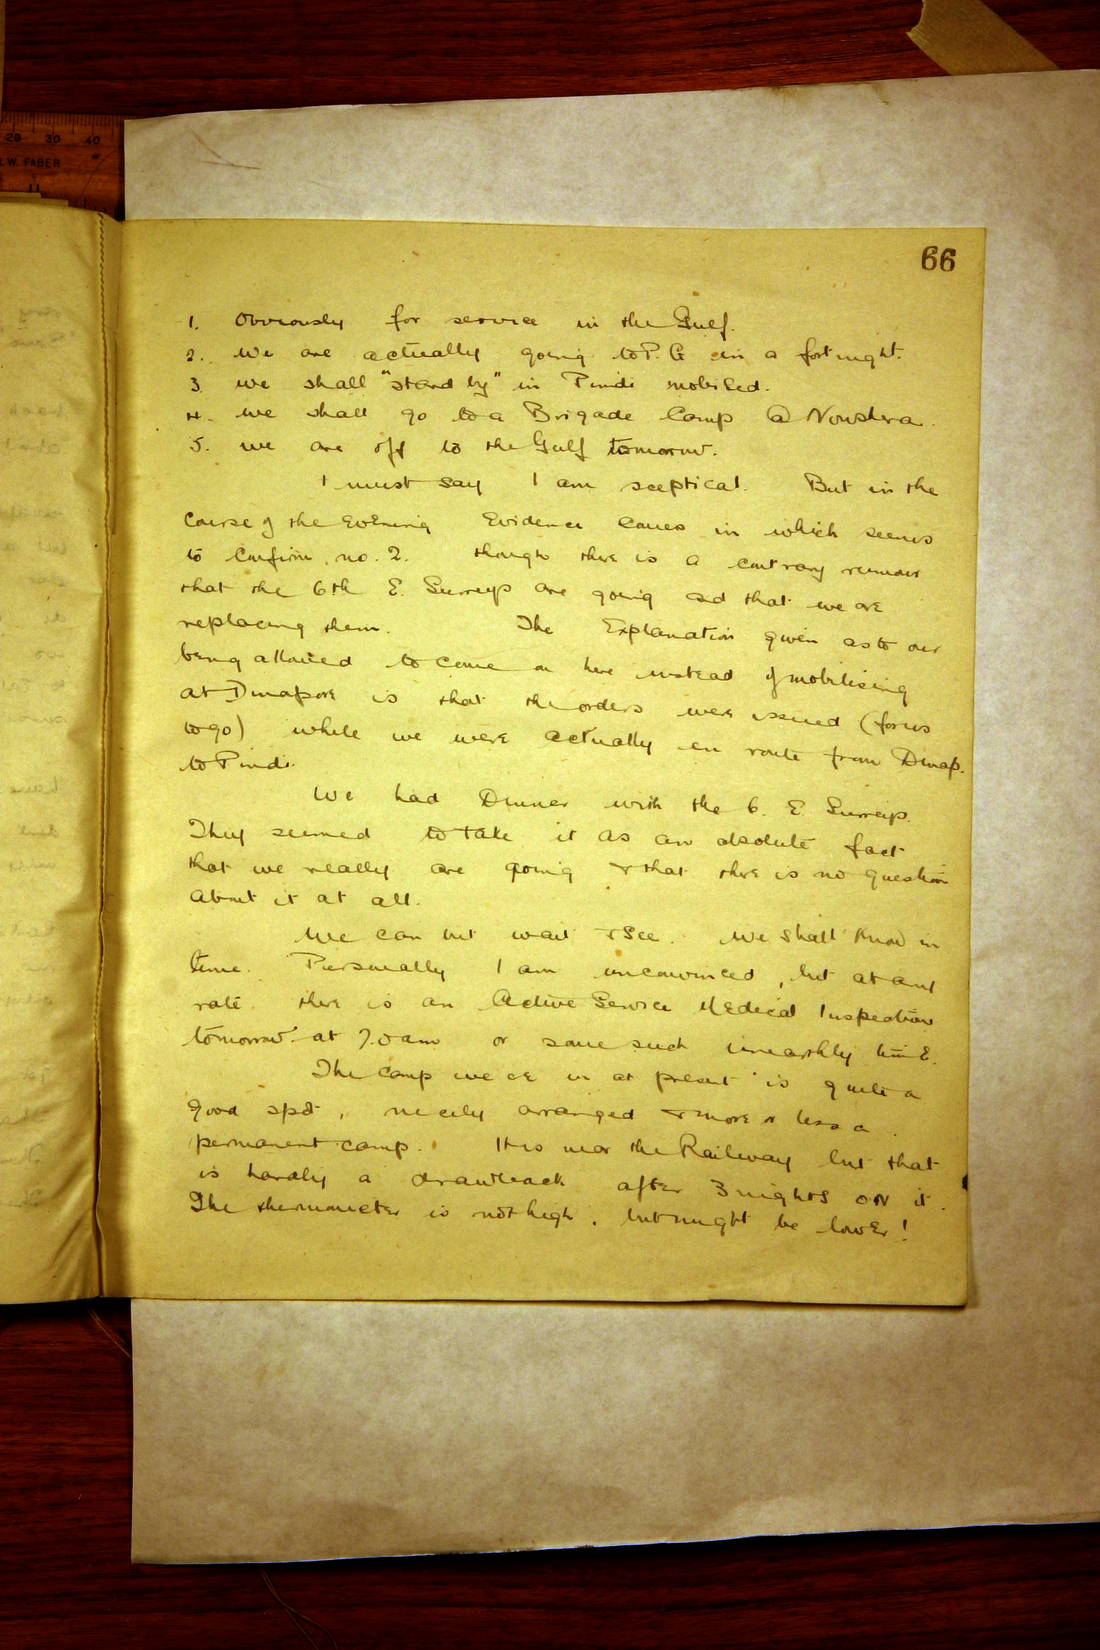 20 30 40
W. FABER
66
1. Obviously for service in the Gulf.
2. We are actually going to P. G in a fortnight.
3. we shall "stand by" in Pindi mobilised.
4. we shall go to a Brigade Camp @ Nowshera.
5. we are off to the Gulf tomorrow.
I must say I am sceptical. But in the
course of the Evening Evidence comes in which seems
to confirm no. 2. though there is a contrary rumour
that the 6th E. Surreys are going and that we are
replacing them. The Explanation given as to our
being allowed to come on here instead of mobilising
at Dinapore is that the orders were issued (for us
to go) while we were actually en route from Dinap.
to Pindi.
We had Dinner with the 6. E Surreys.
They seemed to take it as an absolute fact
that we really are going & that there is no question
about it at all.
We can but wait & See. We shall know in
time. Personally I am unconvinced, but at any
rate there is an Active Service Medical Inspection
tomorrow at 7.0 am or some such unearthly time.
The camp we are in at present is quite a
good spot, nicely arranged & more or less a
permanent camp. It is near the Railway but that
is hardly a drawback after 3 nights on it.
The thermometer is not high, but might be lower!